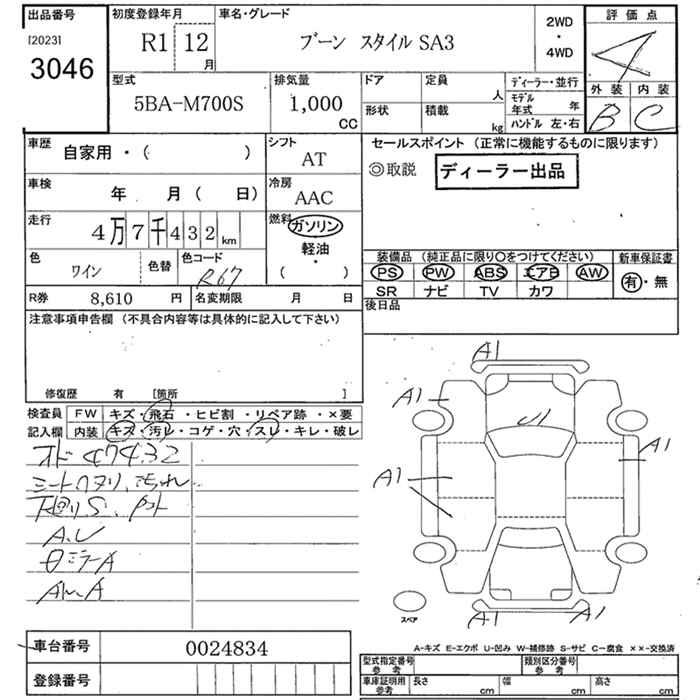 出品番号
[2023]
3046
初度登録年月
R1 12 月
車名・グレード
ブーン スタイル SA3
2WD
・
4WD
評価点
4
外装 内装
B C
型式
5BA-M700S
排気量
1,000
CC
ドア 定員 人
形状 積載 kg
ディーラー・並行
モデル年式 年
ハンドル 左・右
車歴 自家用・( )
シフト
AT
車検 年 月( 日)
冷房
AAC
走行
4万7千432km
燃料
ガソリン
軽油
・
( )
色
ワイン
色替
色コード
R67
R券 8,610 円
名変期限 月 日
セールスポイント (正常に機能するものに限ります)
◎取説 ディーラー出品
装備品 (純正品に限り○をつけてください)
PS PW ABS エアB AW
SR ナビ TV カワ
新車保証書
有・無
後日品
注意事項申告欄 (不具合内容等は具体的に記入して下さい)
修復歴 有 [箇所 ]
検査員 FW キズ・飛石・ヒビ割・リペア跡・×要
記入欄 内装 キズ・汚レ・コゲ・穴・スレ・キレ・破レ
オド 47432
下回りS、
A.U
ミラーA
A
A1
A1
U1
A1
A1
A1 A1
スペア
車台番号 0024834
登録番号
A-キズ E-エクボ U-凹み W-補修跡 S-サビ C-腐食 ××-交換済
型式指定番号 参考
類別区分番号 参考
車庫証明用 参考
長さ cm
幅 cm
高さ cm